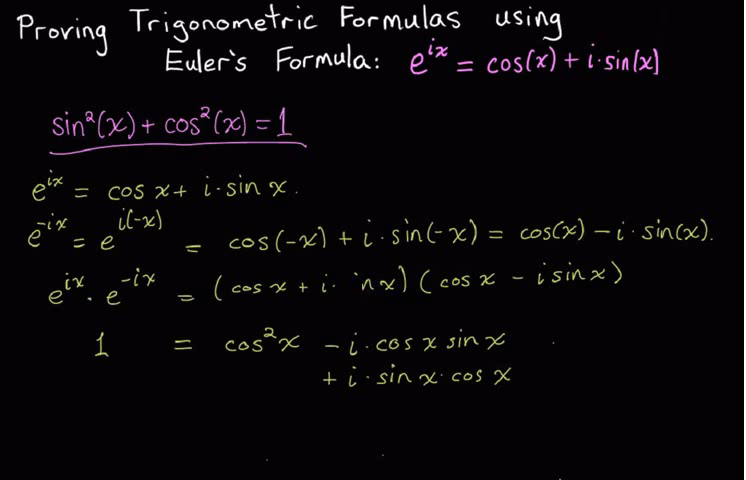 Proving Trigonometric Formulas using
Euler's Formula: e^{ix} = cos(x) + i·sin(x)
sin²(x) + cos²(x) = 1
e^{ix} = cos x + i·sin x.
e^{-ix} = e^{i(-x)} = cos(-x) + i·sin(-x) = cos(x) - i·sin(x).
e^{ix} · e^{-ix} = (cos x + i· inx) (cos x - i sin x)
1 = cos²x - i·cos x sin x
+ i·sin x·cos x